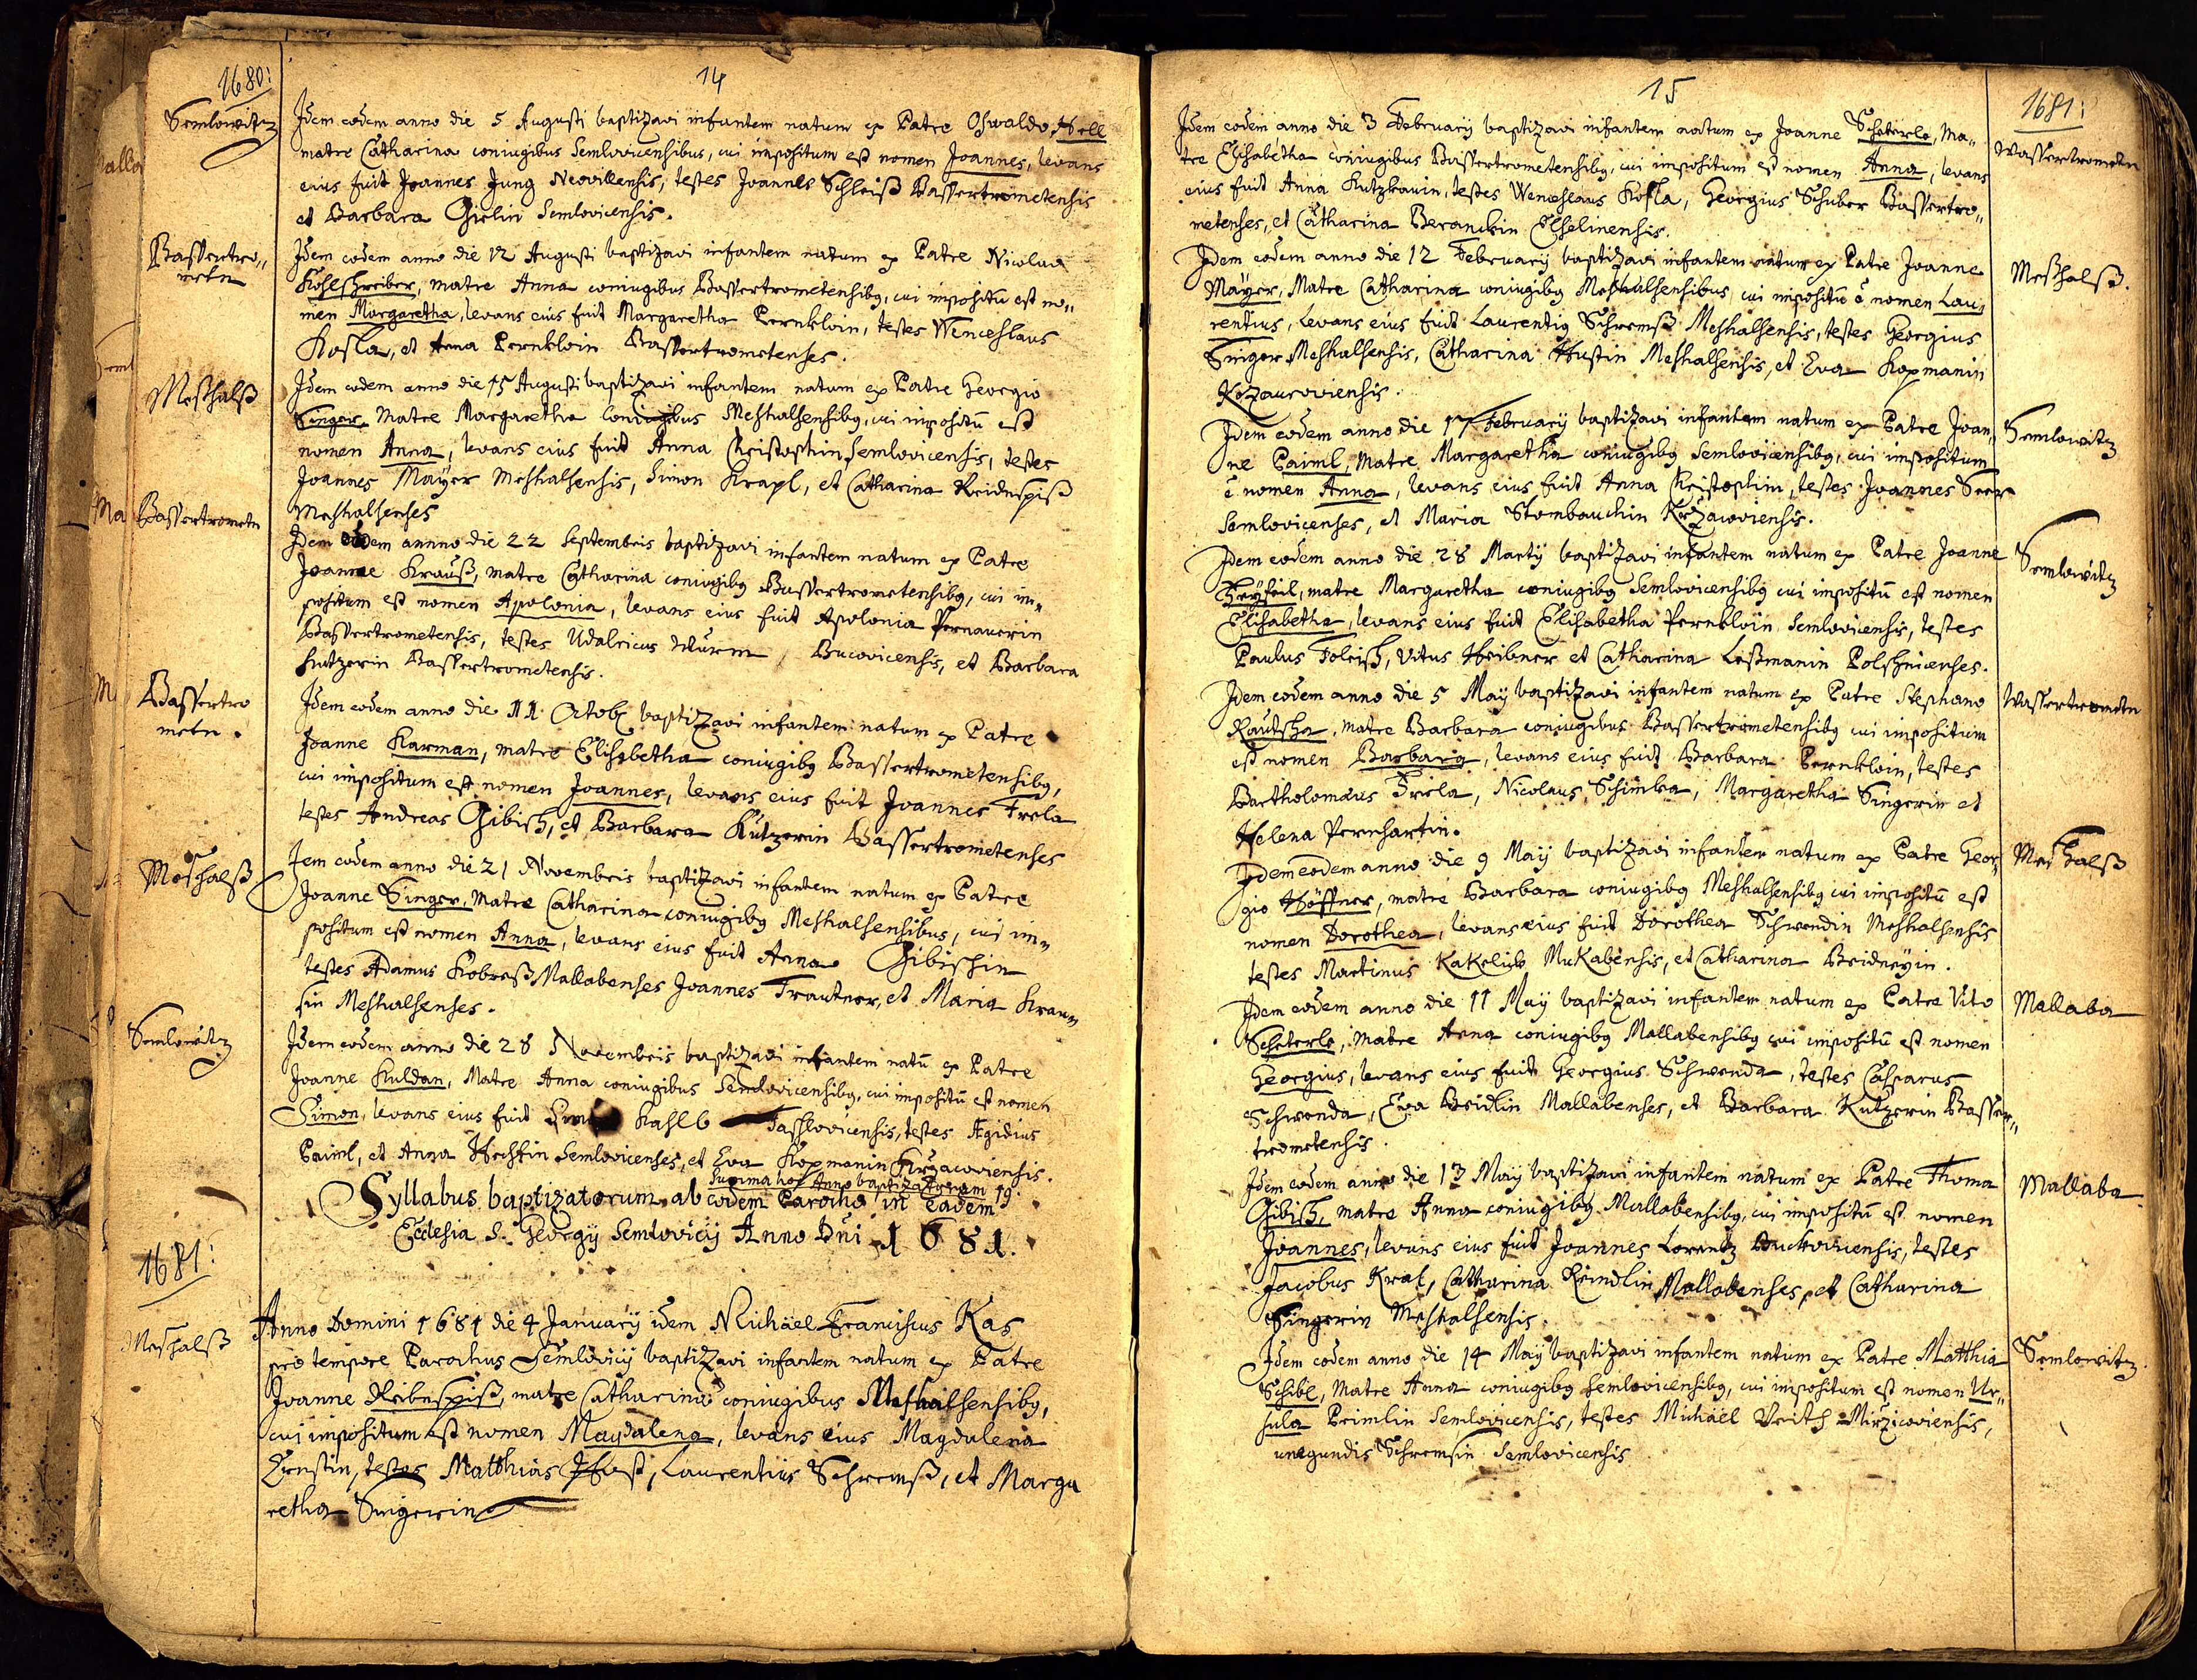 1680:
14
Semlowitz
Idem eodem anno die 5 Augusti baptizavi infantem natum ex Patre Oswaldo Hell
matre Catharina coniugibus Semlovicensibus, cui impositum est nomen Joannes, levans
eius fuit Joannes Jung Neovillensis, testes Joannes Schleiß Bassertrometensis
et Barbara Girlin Semlovicensis.
Bassertro„
metn
Idem eodem anno die 12 Augusti baptizavi infantem natum ex Patre Nicolao
Kohlschreiber, matre Anna coniugibus Bassertrometensibq, cui impositū est no„
men Margaretha, levans eius fuit Margaretha Pernkloin, testes Wenceslaus
Kosla, et Anna Pernkloin Bassertrometenses.
Meshalß
Idem eodem anno die 15 Augusti baptizavi infantem natum ex Patre Georgio
Singer, Matre Margaretha Coniugibus Meshalsensibq, cui impositū est
nomen Anna, levans eius fuit Anna Christophin Semlovicensis, testes
Joannes Mayer Meshalsensis, Simon Krapl, et Catharina Reidnspiß
Meshalsenses
Bassertrometn
Idem eodem annno die 22 Septembris baptizavi infantem natum ex Patre
Joanne Krauß, matre Catharina coniugibq Bassertrometensibq, cui im„
positum est nomen Apolonia, levans eius fuit Apolonia Pernauerin
Bassertrometensis, testes Udalricus Wurm Bucovicensis, et Barbara
Kutzerin Bassertrometensis.
Bassertro
metn.
Idem eodem anno die 11 Octob baptizavi infantem natum ex Patre
Joanne Karman, matre Elisabetha coniugibq Bassertrometensibq,
cui impositum est nomen Joannes, levans eius fuit Joannes Frela
testes Andreas Gibisch, et Barbara Kutzerin Bassertrometenses
Meshalß
Idem eodem anno die 21 Novembris baptizavi infantem natum ex Patre
Joanne Singer, Matre Catharina coniugibq Meshalsensibus, cui im„
positum est nomen Anna, levans eius fuit Anna Gibischin
testes Adamus Kobreß Mallabenses Joannes Trautner, et Maria Krau„
sin Meshalsenses.
Semlowitz
Idem eodem anno die 28 Novembris baptizavi infantem natū ex Patre
Joanne Kuldan, Matre Anna coniugibus Semlovicensibq, cui impositū est nomen
Simon, levans eius fuit Kahlb Tasslovicensis, testes Ægidius
Paiml, et Anna Heshin Semlovicenses, et Eva Kopmanin Krzacoviensis.
Summa hoc Anno baptizatorum 19.
Syllabus baptizatorum ab eodem Parocho in eadem
Ecclesia S. Georgij Semlovicij Anno Dni 1681.
1681:
Meshalß
Anno Domini 1681 die 4 January idem Michäel Franciscus Kas
pro tempore Parochus Semlovicij baptizavi infantem natum ex Patre
Joanne Reibnspiß, matre Catharina coniugibus Meshalsensibq,
cui impositum est nomen Magdalena, levans eius Magdalena
Ernstin, testes Matthias Hust, Laurentius Schremß, et Marga
retha Singerin
15
1681:
Wassertrometn
Idem eodem anno die 3 February baptizavi infantem natum ex Joanne Scheterle, Ma„
tre Elisabetha coniugibus Bassertrometensibq, cui impositum est nomen Anna, levans
eius fuit Anna Kutzkauin, testes Wenceslaus Kosla, Georgius Schuber Bassertro„
metenses, et Catharina Beranckin Elselinensis.
Meshalß.
Idem eodem anno die 12 February baptizavi infantem natum ex Patre Joanne
Mayer, Matre Catharina coniugibq Meshalsensibus cui impositū ē nomen Lau„
rentius, levans eius fuit Laurentiq Schremß Meshalsensis, testes Georgius
Singer Meshalsensis, Catharina Hustin Meshalsensis, et Eva Kopmanin
Krzacoviensis.
Semlowitz
Idem eodem anno die 17 February baptizavi infantem natum ex Patre Joan„
ne Paiml, Matre Margaretha coniugibq Semlovicensibq, cui impositum
ē nomen Anna, levans eius fuit Anna Christophin, testes Joannes Seer
Semlovicenses, et Maria Stombauchin Krzacoviensis.
Semlowitz
Idem eodem anno die 28 Martij baptizavi infantem natum ex Patre Joanne
Hryseil, matre Margaretha coniugibq Semlovicensibq cui impositū est nomen
Elisabetha, levans eius fuit Elisabetha Pernkloin Semlovicensis, testes
Paulus Foleisch, Vitus Heibner et Catharina Leßmanin Polshnicenses.
Wassertrometn
Idem eodem anno die 5 May baptizavi infantem natum ex Patre Stephano
Rautscha, matre Barbara coniugibus Bassertrometensibq cui impositum
est nomen Barbara, levans eius fuit Barbara Pernkloin, testes
Bartholomæus Friela, Nicolaus Schimka, Margaretha Singerin et
Helena Pernhartin.
Meshalß
Idem eodem anno die 9 May baptizavi infantem natum ex Patre Geor„
gio Höffner, matre Barbara coniugibq Meshalsensibq cui impositū est
nomen Dorothea, levans eius fuit Dorothea Schwendin Meshalsensis
testes Martinus Kakelick Mukabensis, et Catharina Beidneyin.
Mallaba
Idem eodem anno die 11 May baptizavi infantem natum ex Patre Vito
Scheterle, Matre Anna coniugibq Mallabensibq cui impositū est nomen
Georgius, levans eius fuit Georgius Schwenda, testes Casparus
Schwenda, Eva Beidlin Mallabenses, et Barbara Kutzerin Basser„
trometensis.
Mallaba
Idem eodem anno die 13 May baptizavi infantem natum ex Patre Thoma
Gibisch, matre Anna coniugibq Mallabensibq, cui impositū est nomen
Joannes, levans eius fuit Joannes Lorentz Buckovicensis, testes
Jacobus Kral, Catharina Reindlin Mallabenses, et Catharina
Singerin Meshalsensis.
Semlowitz
Idem eodem anno die 14 May baptizavi infantem natum ex Patre Matthia
Schibl, Matre Anna coniugibq Semlovicensibq, cui impositum est nomen Ur„
sula Peimlin Semlovicensis, testes Michäel Veith Mirzicoviensis,
unegundis Schremsin Semlovicensis